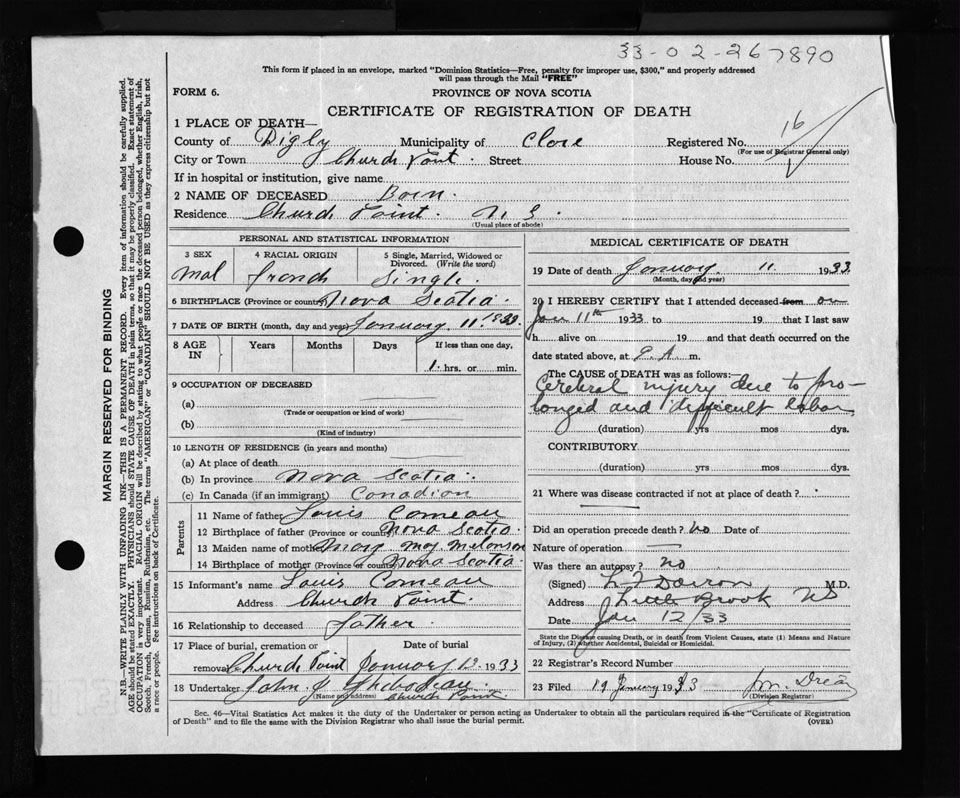 33-02-267890
This form if placed in an envelope, marked "Dominion Statistics—Free, penalty for improper use, $300," and properly addressed
will pass through the Mail "FREE"
FORM 6.
PROVINCE OF NOVA SCOTIA
CERTIFICATE OF REGISTRATION OF DEATH
1 PLACE OF DEATH—
County of Digby Municipality of Clare Registered No. 16
(For use of Registrar General only)
City or Town Church Point. Street House No.
If in hospital or institution, give name
2 NAME OF DECEASED Born.
Residence Church Point. N. S.
(Usual place of abode)
PERSONAL AND STATISTICAL INFORMATION
3 SEX 4 RACIAL ORIGIN 5 Single, Married, Widowed or
Divorced. (Write the word)
Mal french Single.
6 BIRTHPLACE (Province or country) Nova Scotia.
7 DATE OF BIRTH (month, day and year) January 11. 1933.
8 AGE IN Years Months Days If less than one day,
1. hrs. or min.
9 OCCUPATION OF DECEASED
(a)
(Trade or occupation or kind of work)
(b)
(Kind of industry)
10 LENGTH OF RESIDENCE (in years and months)
(a) At place of death
(b) In province Nova Scotia.
(c) In Canada (if an immigrant) Canadian
Parents
11 Name of father Louis Comeau
12 Birthplace of father (Province or country) Nova Scotia.
13 Maiden name of mother Mary May Melanson
14 Birthplace of mother (Province or country) Nova Scotia.
15 Informant's name Louis Comeau
Address Church Point.
16 Relationship to deceased father.
17 Place of burial, cremation or Date of burial
removal Church Point January 12. 1933
18 Undertaker John J. Thibodeau
Church Point.
MEDICAL CERTIFICATE OF DEATH
19 Date of death January 11. 1933.
(Month, day and year)
20 I HEREBY CERTIFY that I attended deceased from on
Jan 11th 1933 to 19 that I last saw
h alive on 19 and that death occurred on the
date stated above, at m.
The CAUSE of DEATH was as follows:—
Cerebral injury due to pro-
longed and difficult labor
(duration) yrs mos dys.
CONTRIBUTORY
(duration) yrs mos dys.
21 Where was disease contracted if not at place of death?
Did an operation precede death? No Date of
Nature of operation —
Was there an autopsy? No
(Signed) M.D.
Address Little Brook NS
Date Jan 12/33
State the Disease causing Death, or in death from Violent Causes, state (1) Means and Nature
of Injury, (2) whether Accidental, Suicidal or Homicidal.
22 Registrar's Record Number
23 Filed 19 January 1933
(Division Registrar)
Sec. 46—Vital Statistics Act makes it the duty of the Undertaker or person acting as Undertaker to obtain all the particulars required in the "Certificate of Registration
of Death" and to file the same with the Division Registrar who shall issue the burial permit.
(OVER)
MARGIN RESERVED FOR BINDING
N.B.—WRITE PLAINLY WITH UNFADING INK—THIS IS A PERMANENT RECORD. Every item of information should be carefully supplied.
AGE should be stated EXACTLY. PHYSICIANS should STATE CAUSE OF DEATH in plain terms, so that it may be properly classified. Exact statement of
OCCUPATION is very important. RACIAL ORIGIN will be described by stating to what people or race the deceased person belonged, whether English, Irish,
Scotch, French, German, Russian, Ruthenian, etc. The terms "AMERICAN" or "CANADIAN" SHOULD NOT BE USED as they express citizenship but not
a race or people. See instructions on back of Certificate.